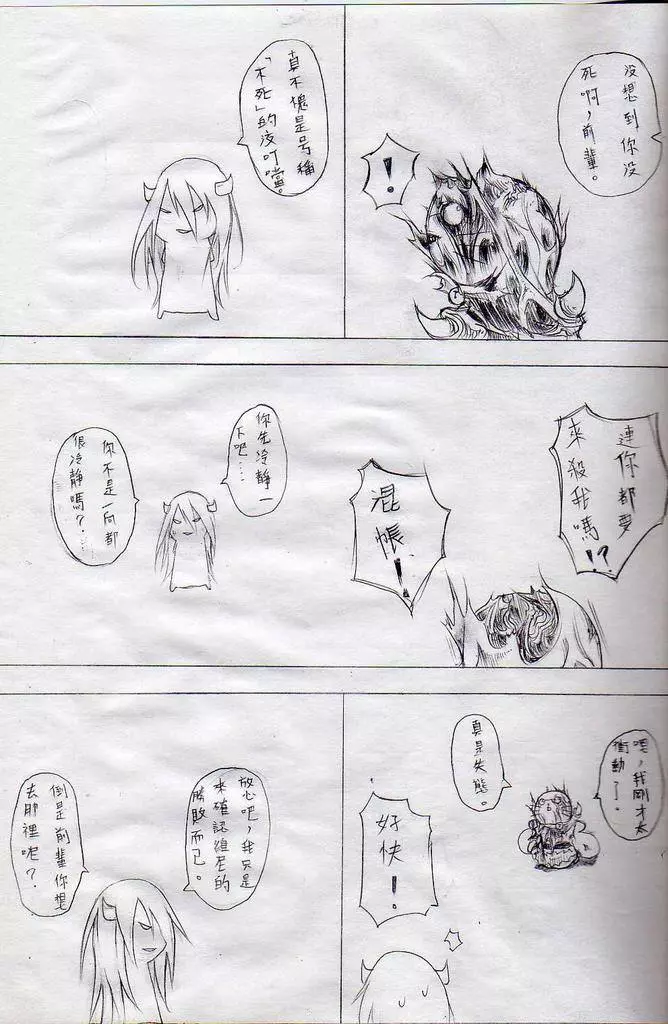 沒想到你沒
死啊，前輩。
！
真不愧是号稱
「不死」的液叮噹。
連你都要
來殺我嗎!?
混帳！
你先冷靜一
下吧……
你不是一向都
很冷靜嗎？…
嗯，我剛才太
衝動了。
真是失態。
好快！
放心吧，我只是
來確認維尼的
勝敗而已。
倒是前輩你想
去那裡呢？